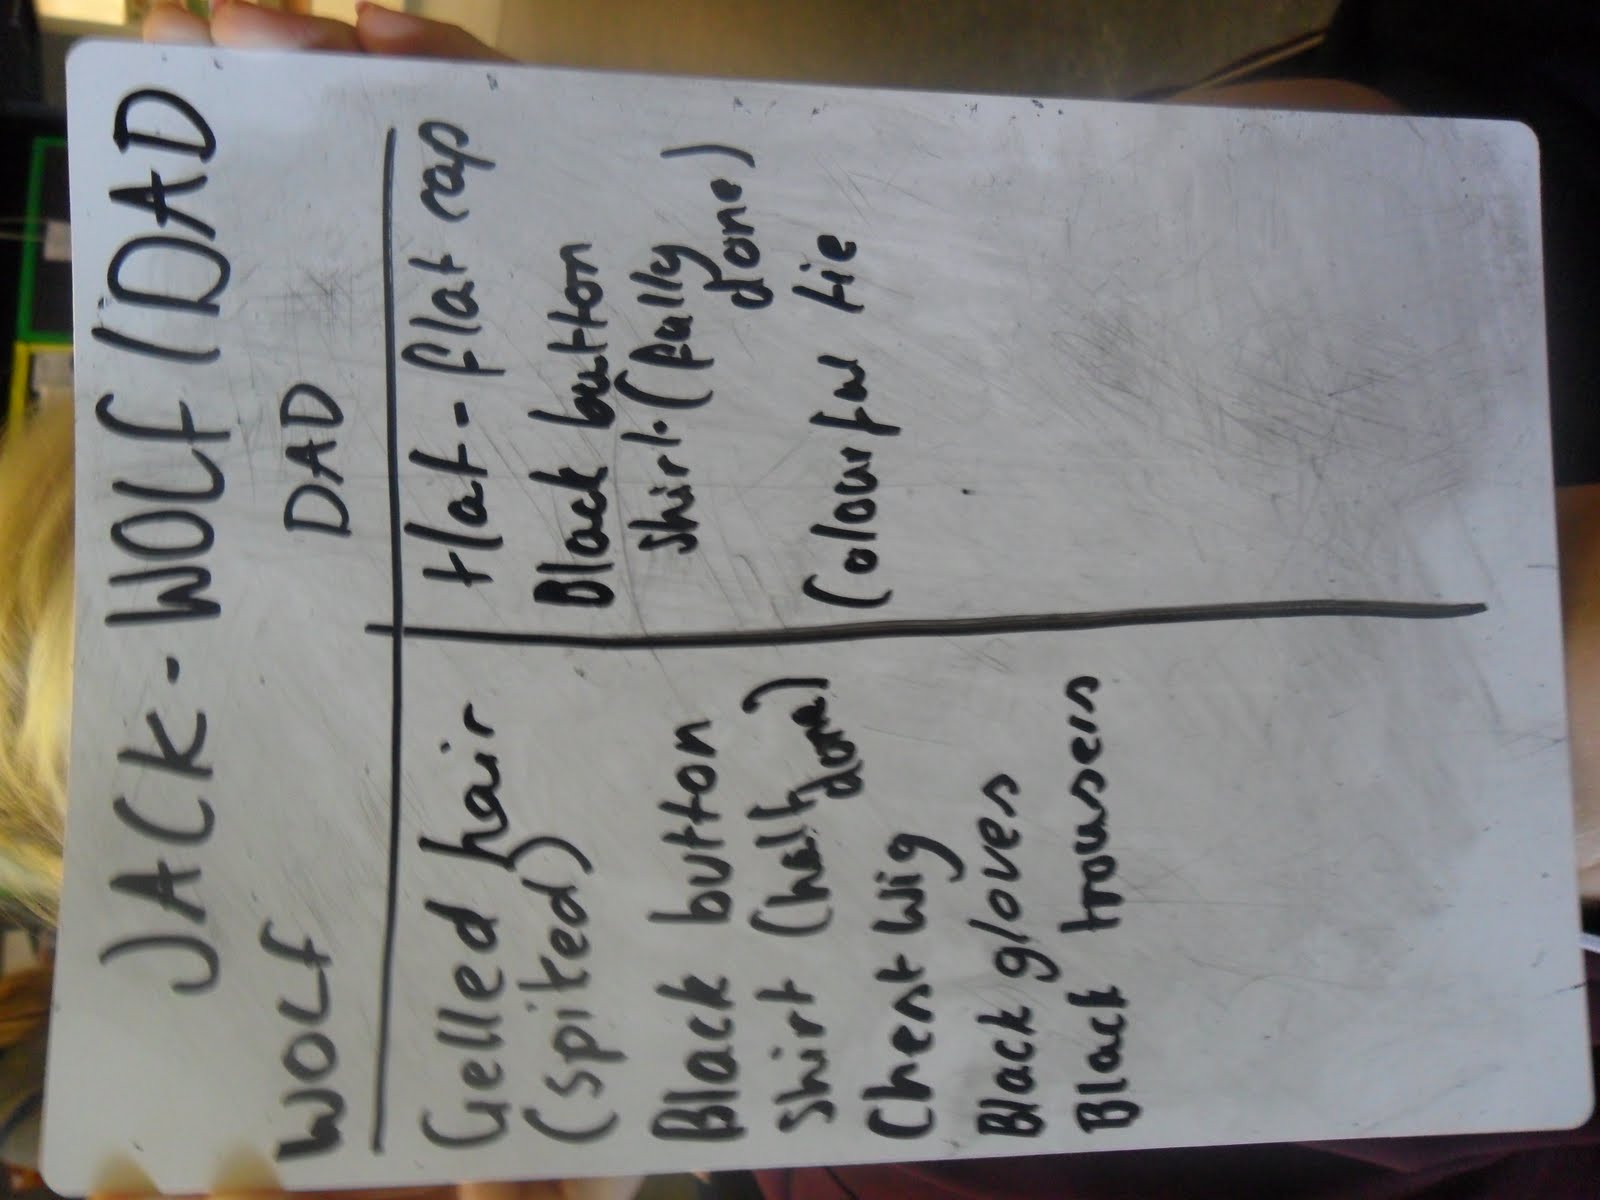 JACK - WOLF/DAD
WOLF
Gelled hair
(spiked)
Black button
shirt (half
done)
Chest wig
Black gloves
Black trousers
DAD
Hat - flat cap
Black button
shirt (fully
done)
Colourful tie